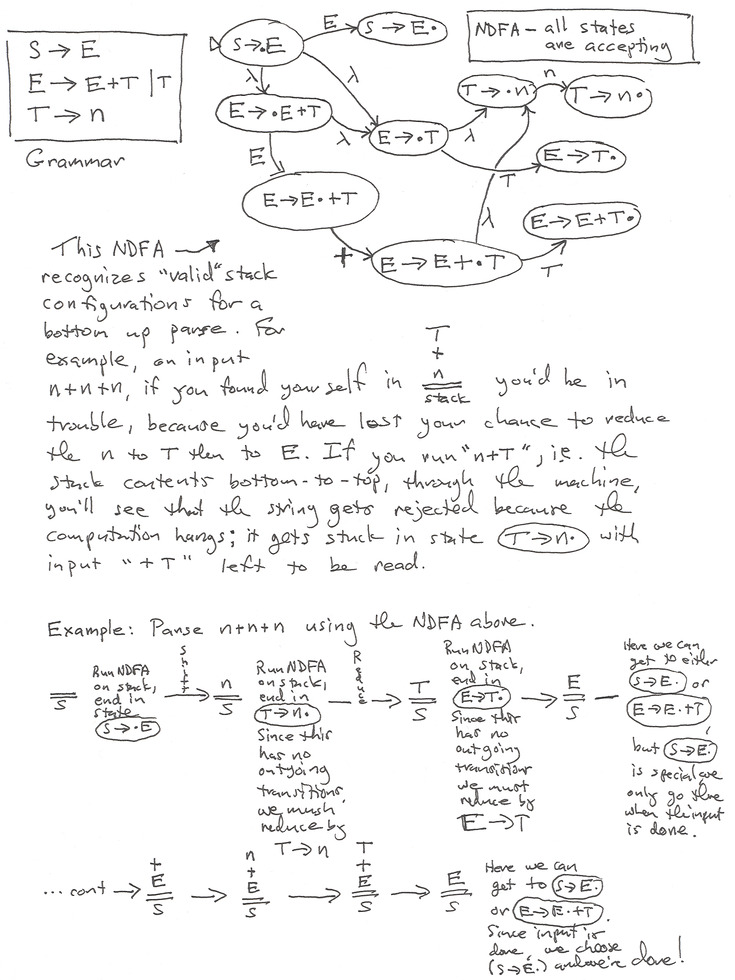 S → E
E → E+T | T
T → n
Grammar
S → .E
E
S → E.
NDFA – all states
are accepting
λ
λ
T → .n
n
T → n.
E → .E+T
λ
E → .T
λ
E → T.
E
T
E → E. +T
λ
E → E+T.
+
E → E+.T
T
This NDFA →
recognizes "valid" stack
configurations for a
bottom up parse. For
example, on input
n+n+n, if you found yourself in
T
+
n
stack
you'd be in
trouble, because you'd have lost your chance to reduce
the n to T then to E. If you run "n+T", i.e. the
stack contents bottom-to-top, through the machine,
you'll see that the string gets rejected because the
computation hangs; it gets stuck in state T → n. with
input "+T" left to be read.
Example: Parse n+n+n using the NDFA above.
S
Run NDFA
on stack,
end in
state
S → .E
Shift
n
S
Run NDFA
on stack,
end in
T → n.
Since this
has no
outgoing
transitions
we must
reduce by
T → n
Reduce
T
S
Run NDFA
on stack,
end in
E → T.
Since this
has no
outgoing
transitions
we must
reduce by
E → T
E
S
Here we can
get to either
S → E. or
E → E.+T
but S → E.
is special, we
only go there
when the input
is done.
... cont →
+
E
S
n
+
E
S
T
+
E
S
E
S
Here we can
get to S → E.
or E → E.+T.
Since input is
done, we choose
(S → E.) and we're done!